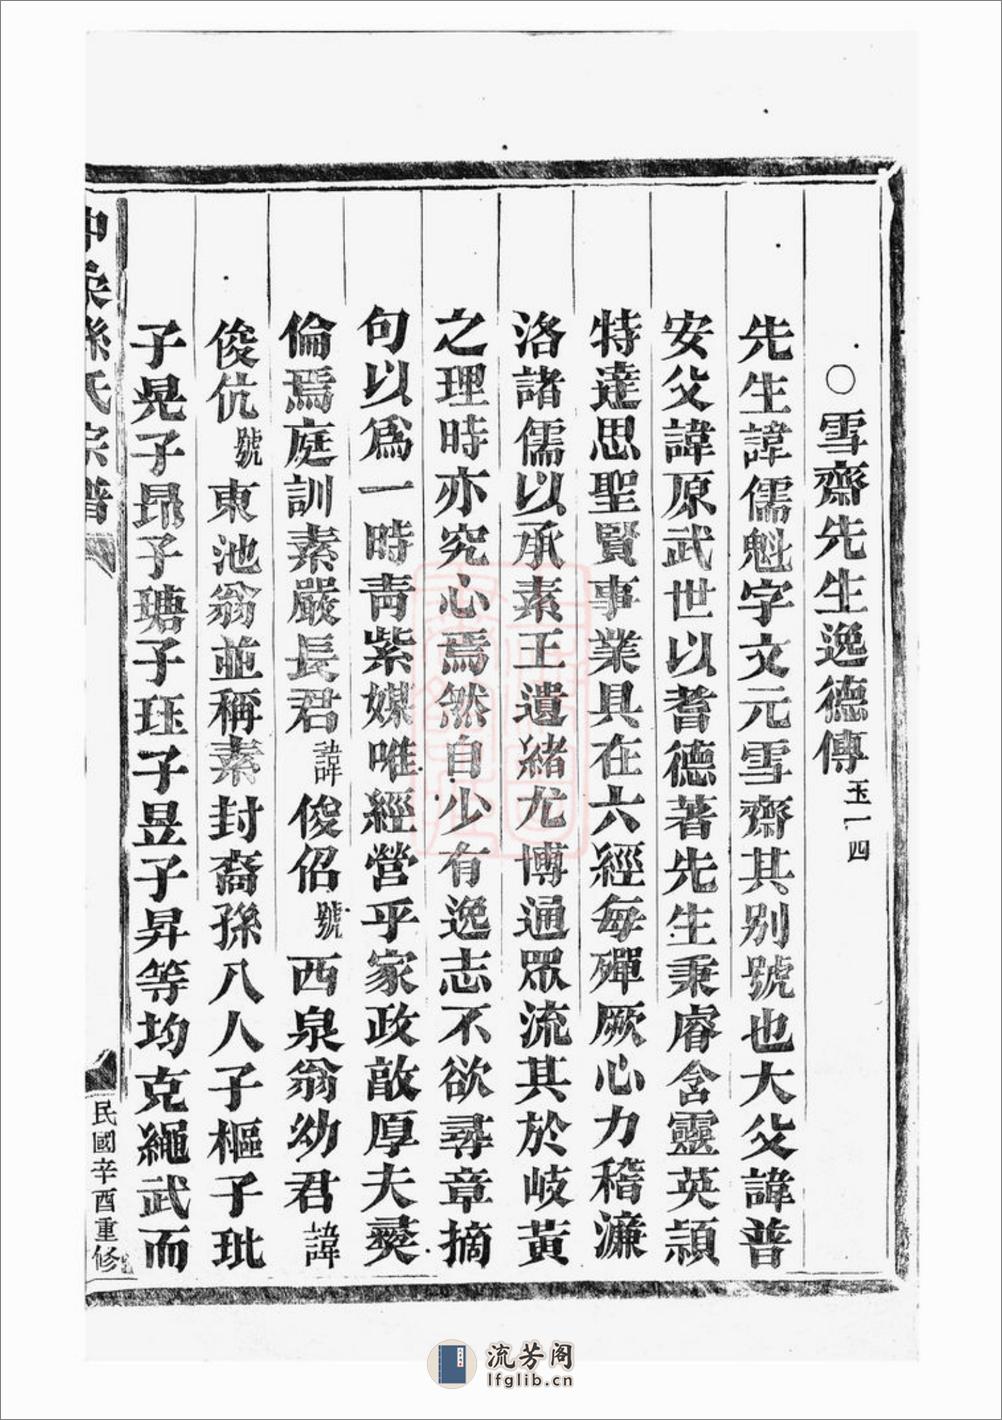 ○雪齋先生逸德傳玉一四
先生諱儒魁字文元雪齋其別號也大父諱普
安父諱原武世以耆德著先生秉睿含靈英頴
特達思聖賢事業具在六經每殫厥心力稽濂
洛諸儒以承素王遺緒尤博通眾流其於岐黃
之理時亦究心焉然自少有逸志不欲尋章摘
句以為一時靑紫媒唯經營乎家政敦厚夫彞
倫焉庭訓素嚴長君諱俊佋號西泉翁幼君諱
俊伉號東池翁並稱素封裔孫八人子樞子玭
子晃子昂子瑭子珏子昱子昇等均克繩武而
孫氏宗譜
民國辛酉重修
流芳阁
lfglib.cn